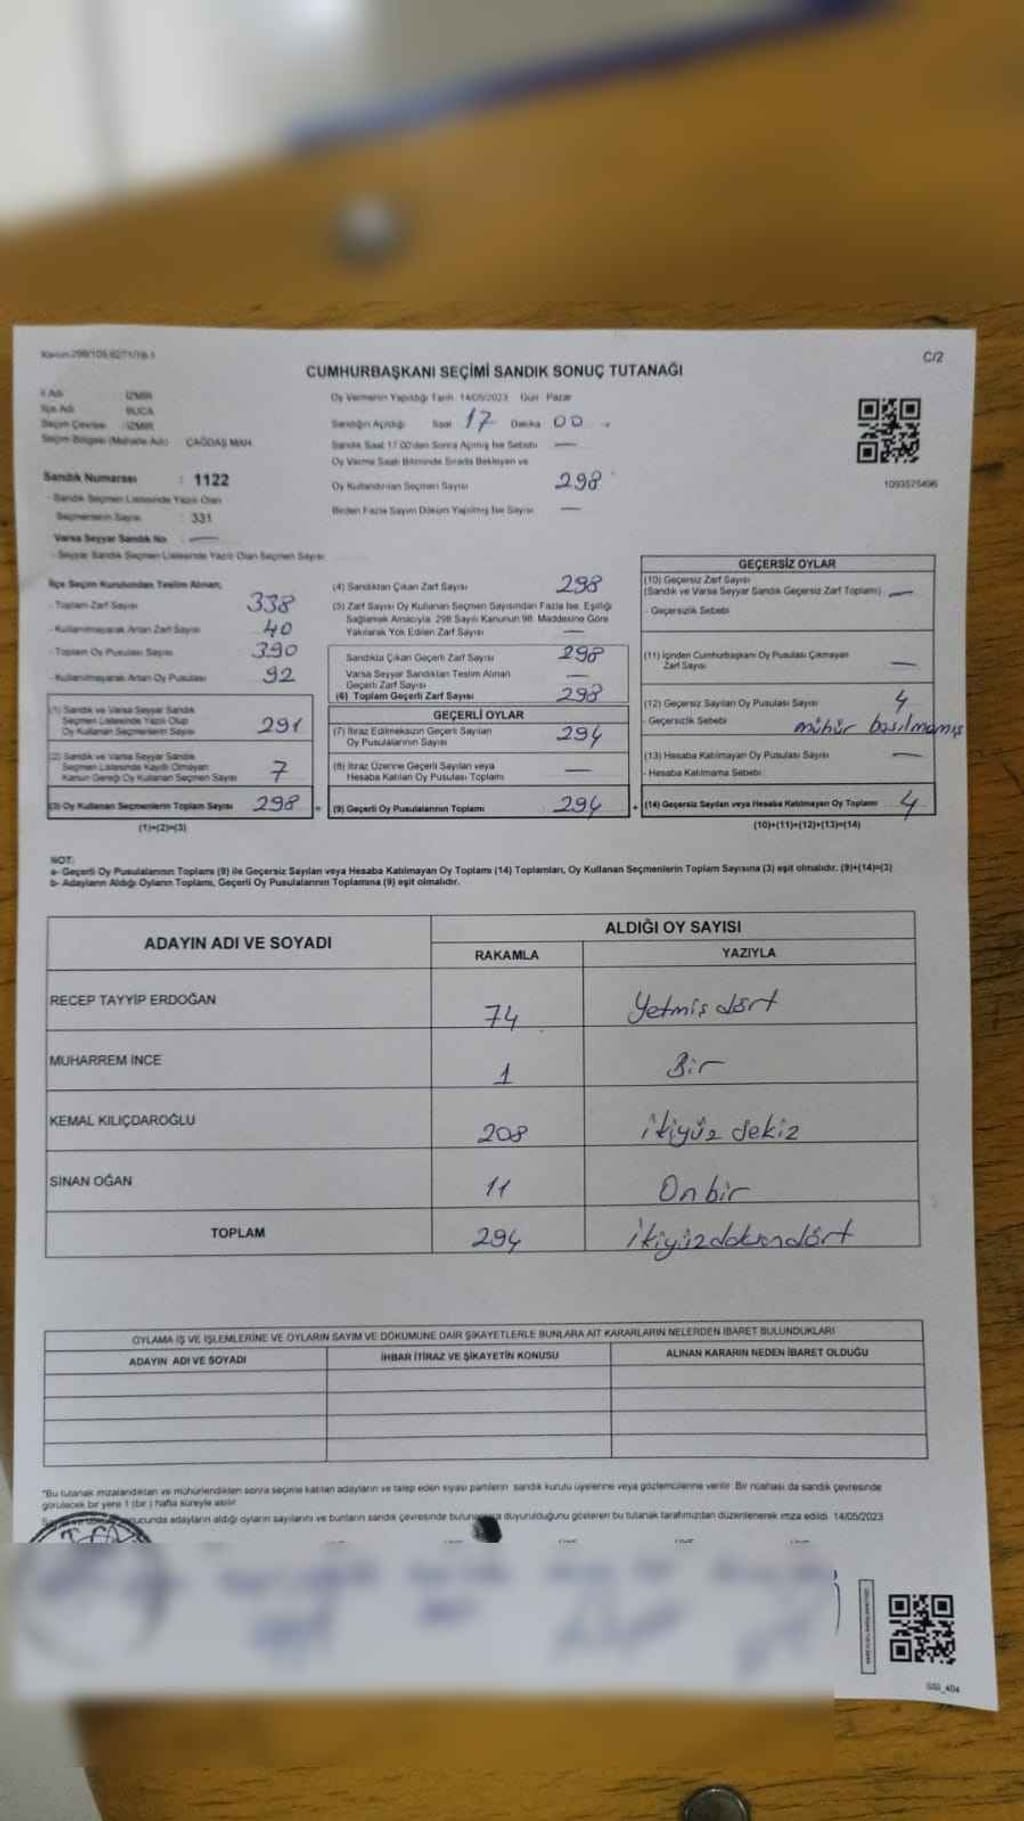 Kanun:298/105,6271/19-1
C/2
CUMHURBAŞKANI SEÇİMİ SANDIK SONUÇ TUTANAĞI
İl Adı İZMİR
İlçe Adı BUCA
Seçim Çevresi : İZMİR
Seçim Bölgesi (Mahalle Adı) ÇAĞDAŞ MAH.
Sandık Numarası : 1122
- Sandık Seçmen Listesinde Yazılı Olan
Seçmenlerin Sayısı : 331
Varsa Seyyar Sandık No —
- Seyyar Sandık Seçmen Listesinde Yazılı Olan Seçmen Sayısı
Oy Vermenin Yapıldığı Tarih 14/05/2023 Gün Pazar
Sandığın Açıldığı Saat 17 Dakika 00
Sandık Saat 17.00'den Sonra Açılmış İse Sebebi —
Oy Verme Saati Bitiminde Sırada Bekleyen ve
Oy Kullandırılan Seçmen Sayısı 298
Birden Fazla Sayım Döküm Yapılmış İse Sayısı —
1093575496
İlçe Seçim Kurulundan Teslim Alınan;
- Toplam Zarf Sayısı 338
- Kullanılmayarak Artan Zarf Sayısı 40
- Toplam Oy Pusulası Sayısı 390
- Kullanılmayarak Artan Oy Pusulası 92
(1) Sandık ve Varsa Seyyar Sandık
Seçmen Listesinde Yazılı Olup
Oy Kullanan Seçmenlerin Sayısı 291
(2) Sandık ve Varsa Seyyar Sandık
Seçmen Listesinde Kayıtlı Olmayan
Kanun Gereği Oy Kullanan Seçmen Sayısı 7
(3) Oy Kullanan Seçmenlerin Toplam Sayısı 298
(1)+(2)=(3)
(4) Sandıktan Çıkan Zarf Sayısı 298
(5) Zarf Sayısı Oy Kullanan Seçmen Sayısından Fazla İse, Eşitliği
Sağlamak Amacıyla 298 Sayılı Kanunun 98. Maddesine Göre
Yakılarak Yok Edilen Zarf Sayısı —
Sandıkta Çıkan Geçerli Zarf Sayısı 298
Varsa Seyyar Sandıktan Teslim Alınan
Geçerli Zarf Sayısı —
(6) Toplam Geçerli Zarf Sayısı 298
GEÇERLİ OYLAR
(7) İtiraz Edilmeksizin Geçerli Sayılan
Oy Pusulalarının Sayısı 294
(8) İtiraz Üzerine Geçerli Sayılan veya
Hesaba Katılan Oy Pusulası Toplamı —
= (9) Geçerli Oy Pusulalarının Toplamı 294
GEÇERSİZ OYLAR
(10) Geçersiz Zarf Sayısı
(Sandık ve Varsa Seyyar Sandık Geçersiz Zarf Toplamı) —
- Geçersizlik Sebebi
(11) İçinden Cumhurbaşkanı Oy Pusulası Çıkmayan
Zarf Sayısı —
(12) Geçersiz Sayılan Oy Pusulası Sayısı 4
- Geçersizlik Sebebi mühür basılmamış
(13) Hesaba Katılmayan Oy Pusulası Sayısı —
- Hesaba Katılmama Sebebi
+ (14) Geçersiz Sayılan veya Hesaba Katılmayan Oy Toplamı 4
(10)+(11)+(12)+(13)=(14)
NOT:
a- Geçerli Oy Pusulalarının Toplamı (9) ile Geçersiz Sayılan veya Hesaba Katılmayan Oy Toplamı (14) Toplamları, Oy Kullanan Seçmenlerin Toplam Sayısına (3) eşit olmalıdır. (9)+(14)=(3)
b- Adayların Aldığı Oyların Toplamı, Geçerli Oy Pusulalarının Toplamına (9) eşit olmalıdır.
ADAYIN ADI VE SOYADI
ALDIĞI OY SAYISI
RAKAMLA YAZIYLA
RECEP TAYYİP ERDOĞAN 74 Yetmiş dört
MUHARREM İNCE 1 Bir
KEMAL KILIÇDAROĞLU 208 ikiyüz sekiz
SİNAN OĞAN 11 Onbir
TOPLAM 294 ikiyüzdoksandört
OYLAMA İŞ VE İŞLEMLERİNE VE OYLARIN SAYIM VE DÖKÜMÜNE DAİR ŞİKAYETLERLE BUNLARA AİT KARARLARIN NELERDEN İBARET BULUNDUKLARI
ADAYIN ADI VE SOYADI İHBAR İTİRAZ VE ŞİKAYETİN KONUSU ALINAN KARARIN NEDEN İBARET OLDUĞU
*Bu tutanak imzalandıktan ve mühürlendikten sonra seçime katılan adayların ve talep eden siyasi partilerin sandık kurulu üyelerine veya gözlemcilerine verilir. Bir nüshası da sandık çevresinde
görülecek bir yere 1 (bir ) hafta süreyle asılır.
ucunda adayların aldığı oyların sayılarını ve bunların sandık çevresinde duyurulduğunu gösteren bu tutanak tarafımızdan düzenlenerek imza edildi. 14/05/2023
T.C.